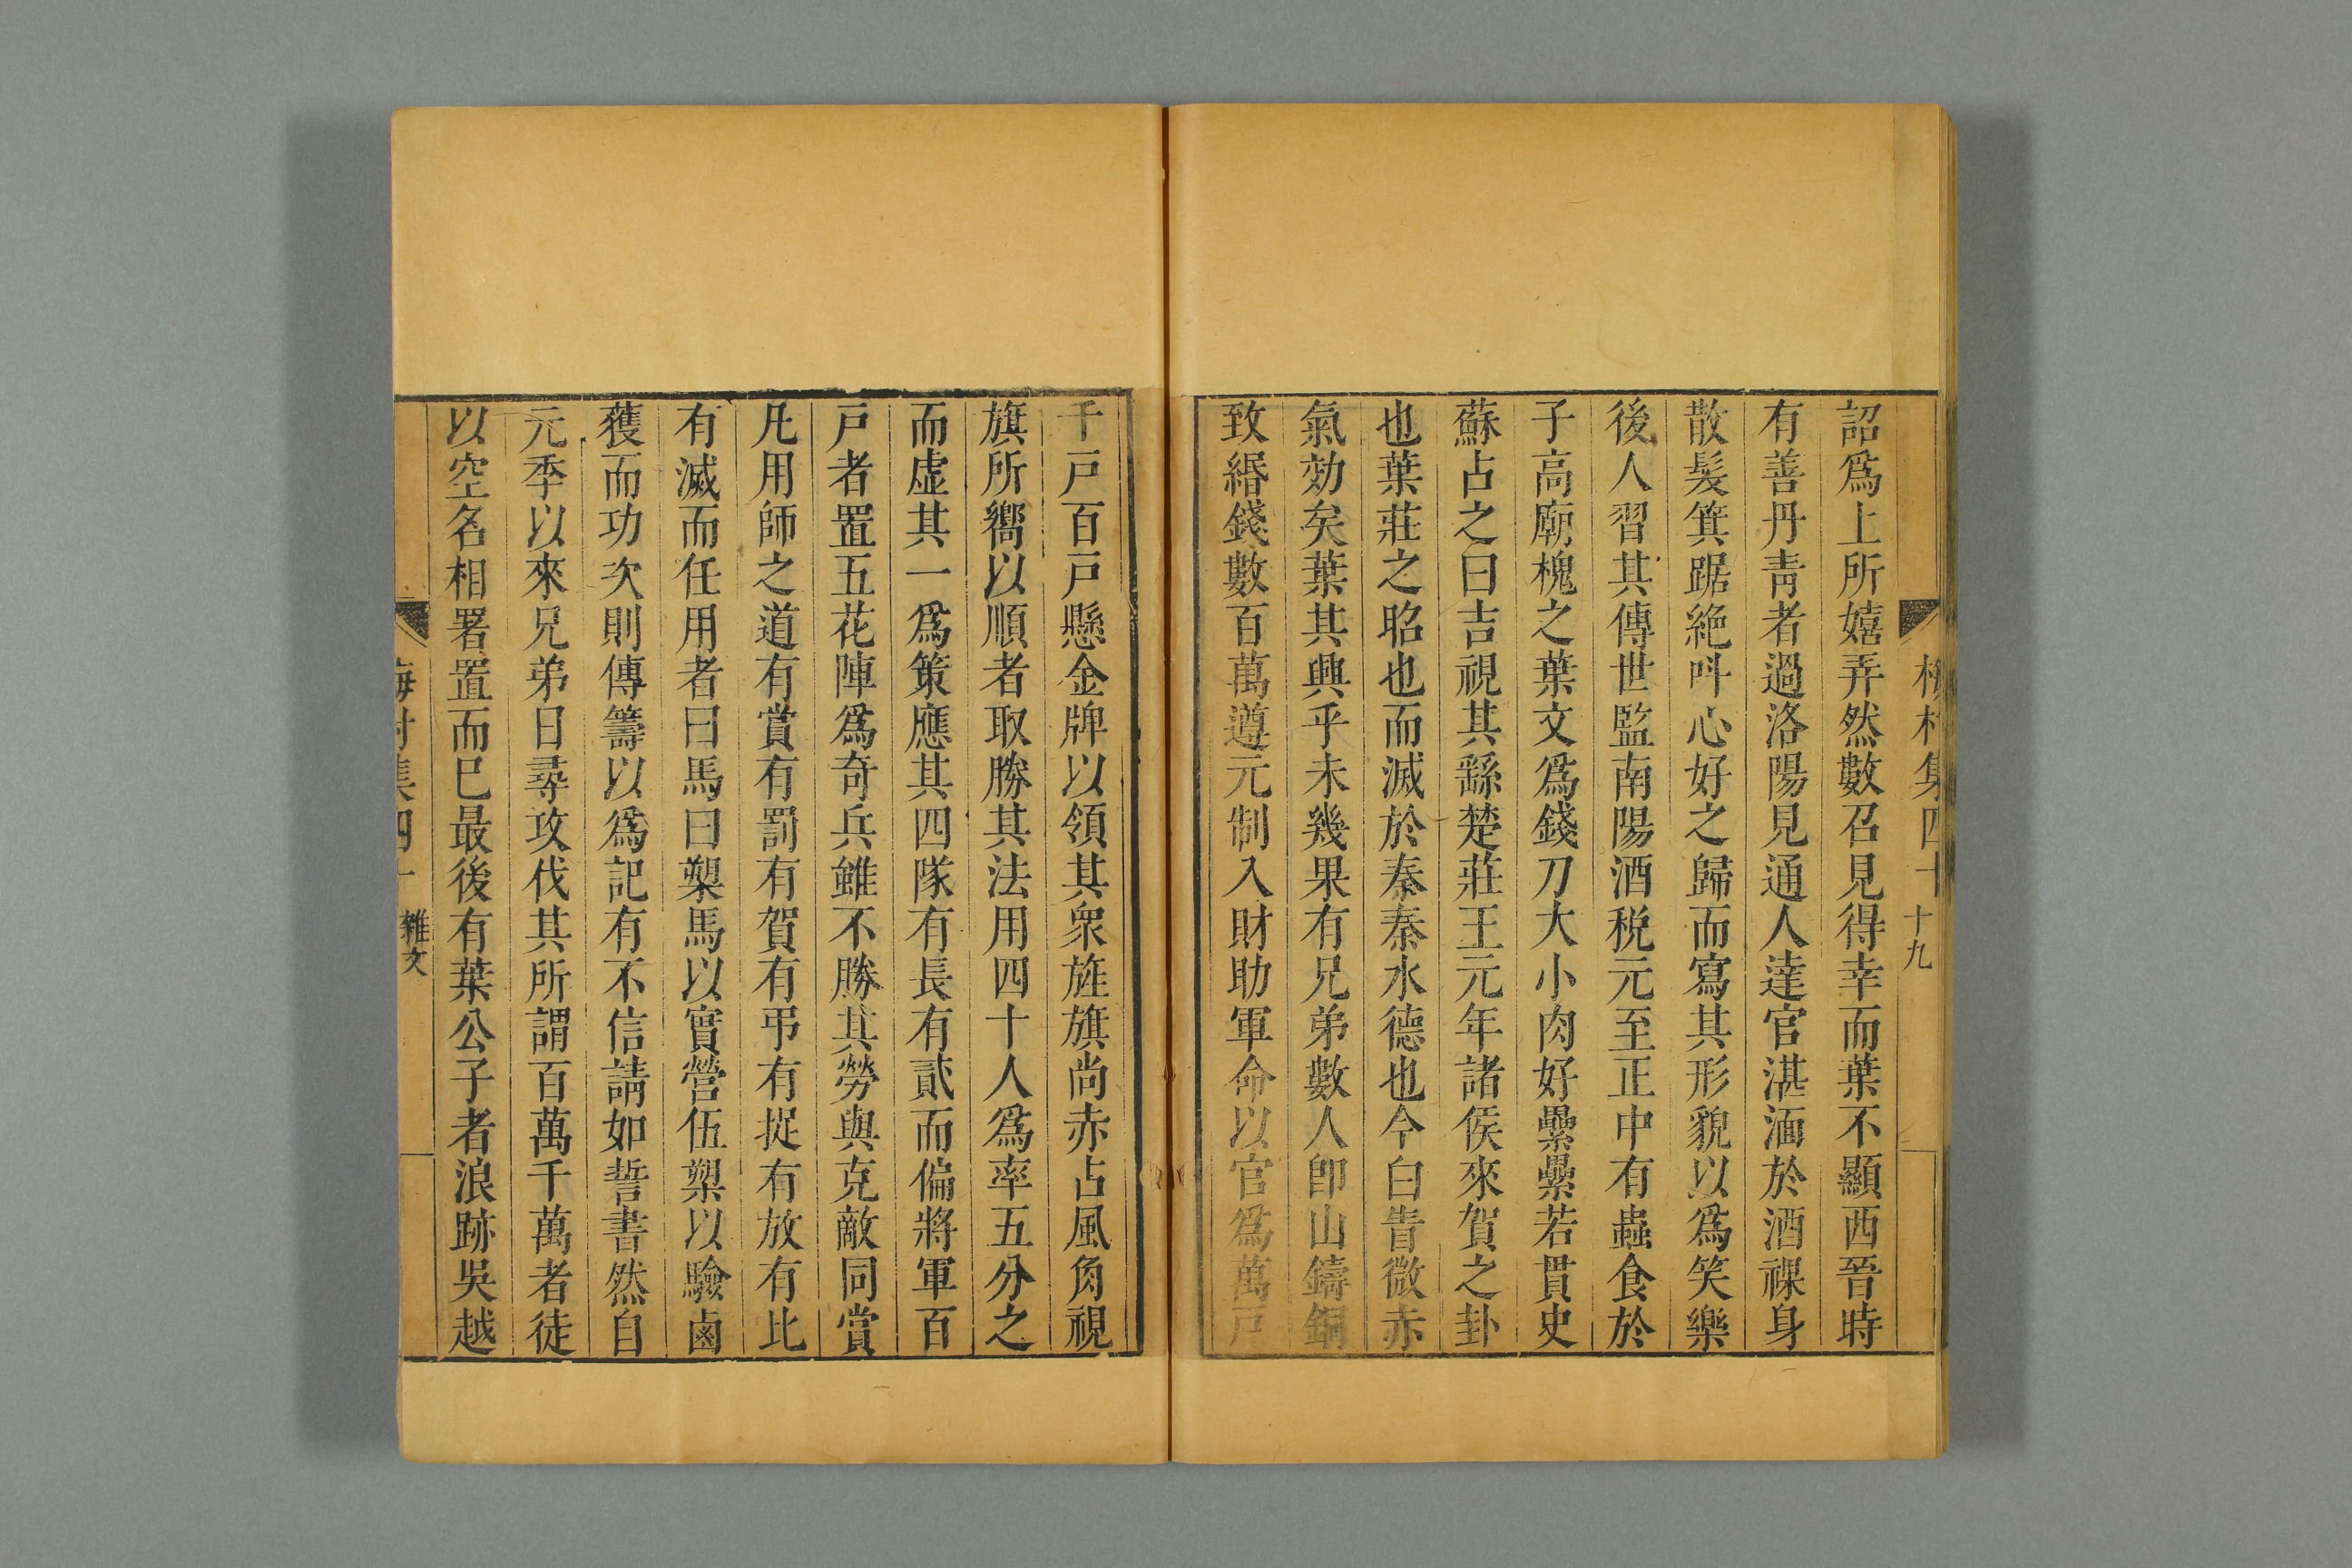 詔爲上所嬉弄然數召見得幸而葉不顯西晉時
有善丹靑者過洛陽見通人達官湛湎於酒祼身
散髮箕踞絶呌心好之歸而寫其形貌以爲笑樂
後人習其傳世監南陽酒税元至正中有蟲食於
子高廟槐之葉文爲錢刀大小肉好纍纍若貫史
蘇占之曰吉視其繇楚莊王元年諸侯來賀之卦
也葉莊之昭也而滅於秦秦水德也今白眚微赤
氣効矣葉其興乎未幾果有兄弟數人卽山鑄銅
致緡錢數百萬遵元制入財助軍命以官爲萬戸
梅村集四十
十九
千戸百戸懸金牌以領其衆旌旗尚赤占風角視
旗所嚮以順者取勝其法用四十人爲率五分之
而虛其一爲策應其四隊有長有貳而偏將軍百
戸者置五花陣爲奇兵雖不勝其勞與克敵同賞
凡用師之道有賞有罰有賀有弔有捉有放有比
有滅而任用者曰馬曰槊馬以實營伍槊以驗鹵
獲而功次則傳籌以爲記有不信請如誓書然自
元季以來兄弟日尋攻伐其所謂百萬千萬者徒
以空名相署置而已最後有葉公子者浪跡吳越
梅村集四十
雜文